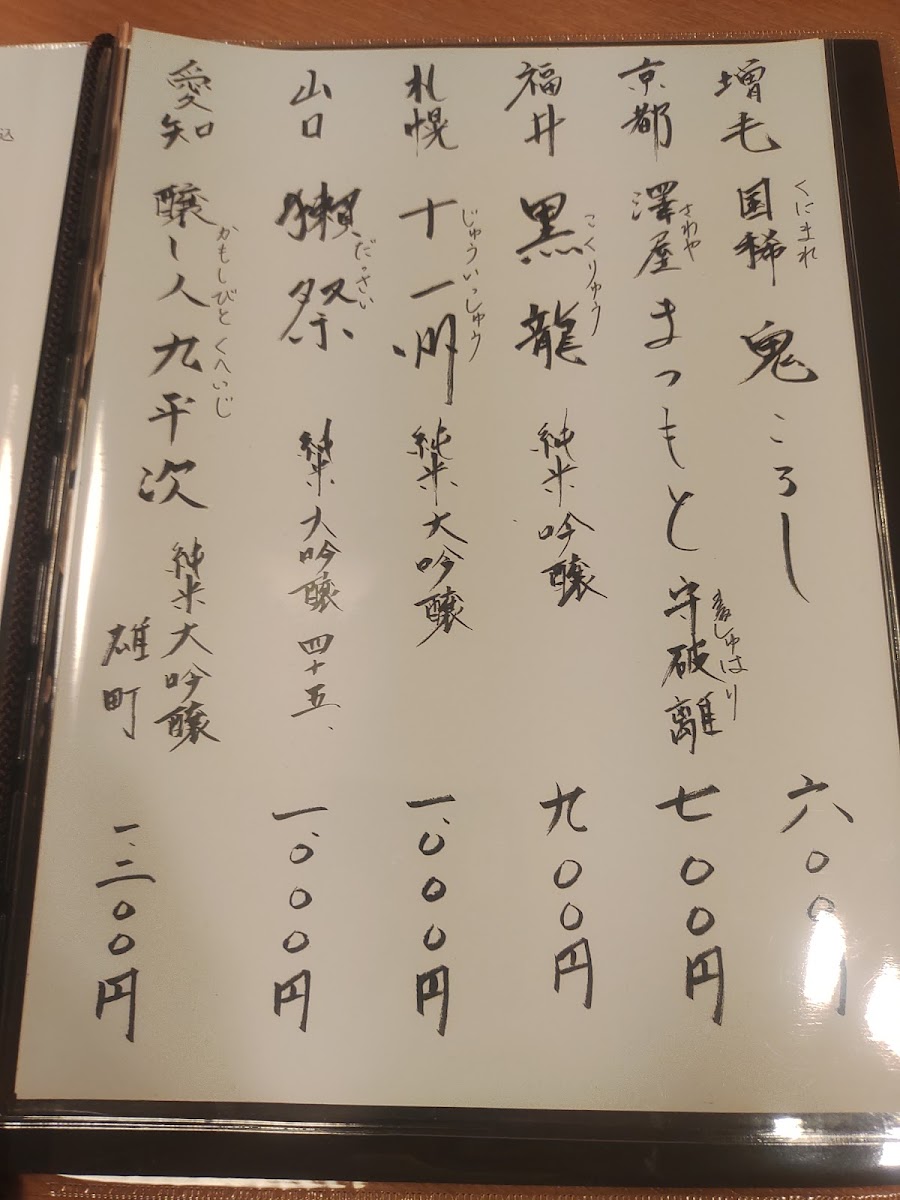 くにまれ
増毛 国稀 鬼ころし 六〇〇円
さわや しゅはり
京都 澤屋まつもと 守破離 七〇〇円
こくりゅう
福井 黒龍 純米吟醸 九〇〇円
じゅういっしゅう
札幌 十一州 純米大吟醸 一、〇〇〇円
だっさい
山口 獺祭 純米大吟醸 四十五、 一、〇〇〇円
かもしびと くへいじ
愛知 醸し人九平次 純米大吟醸
雄町 一、三〇〇円
込